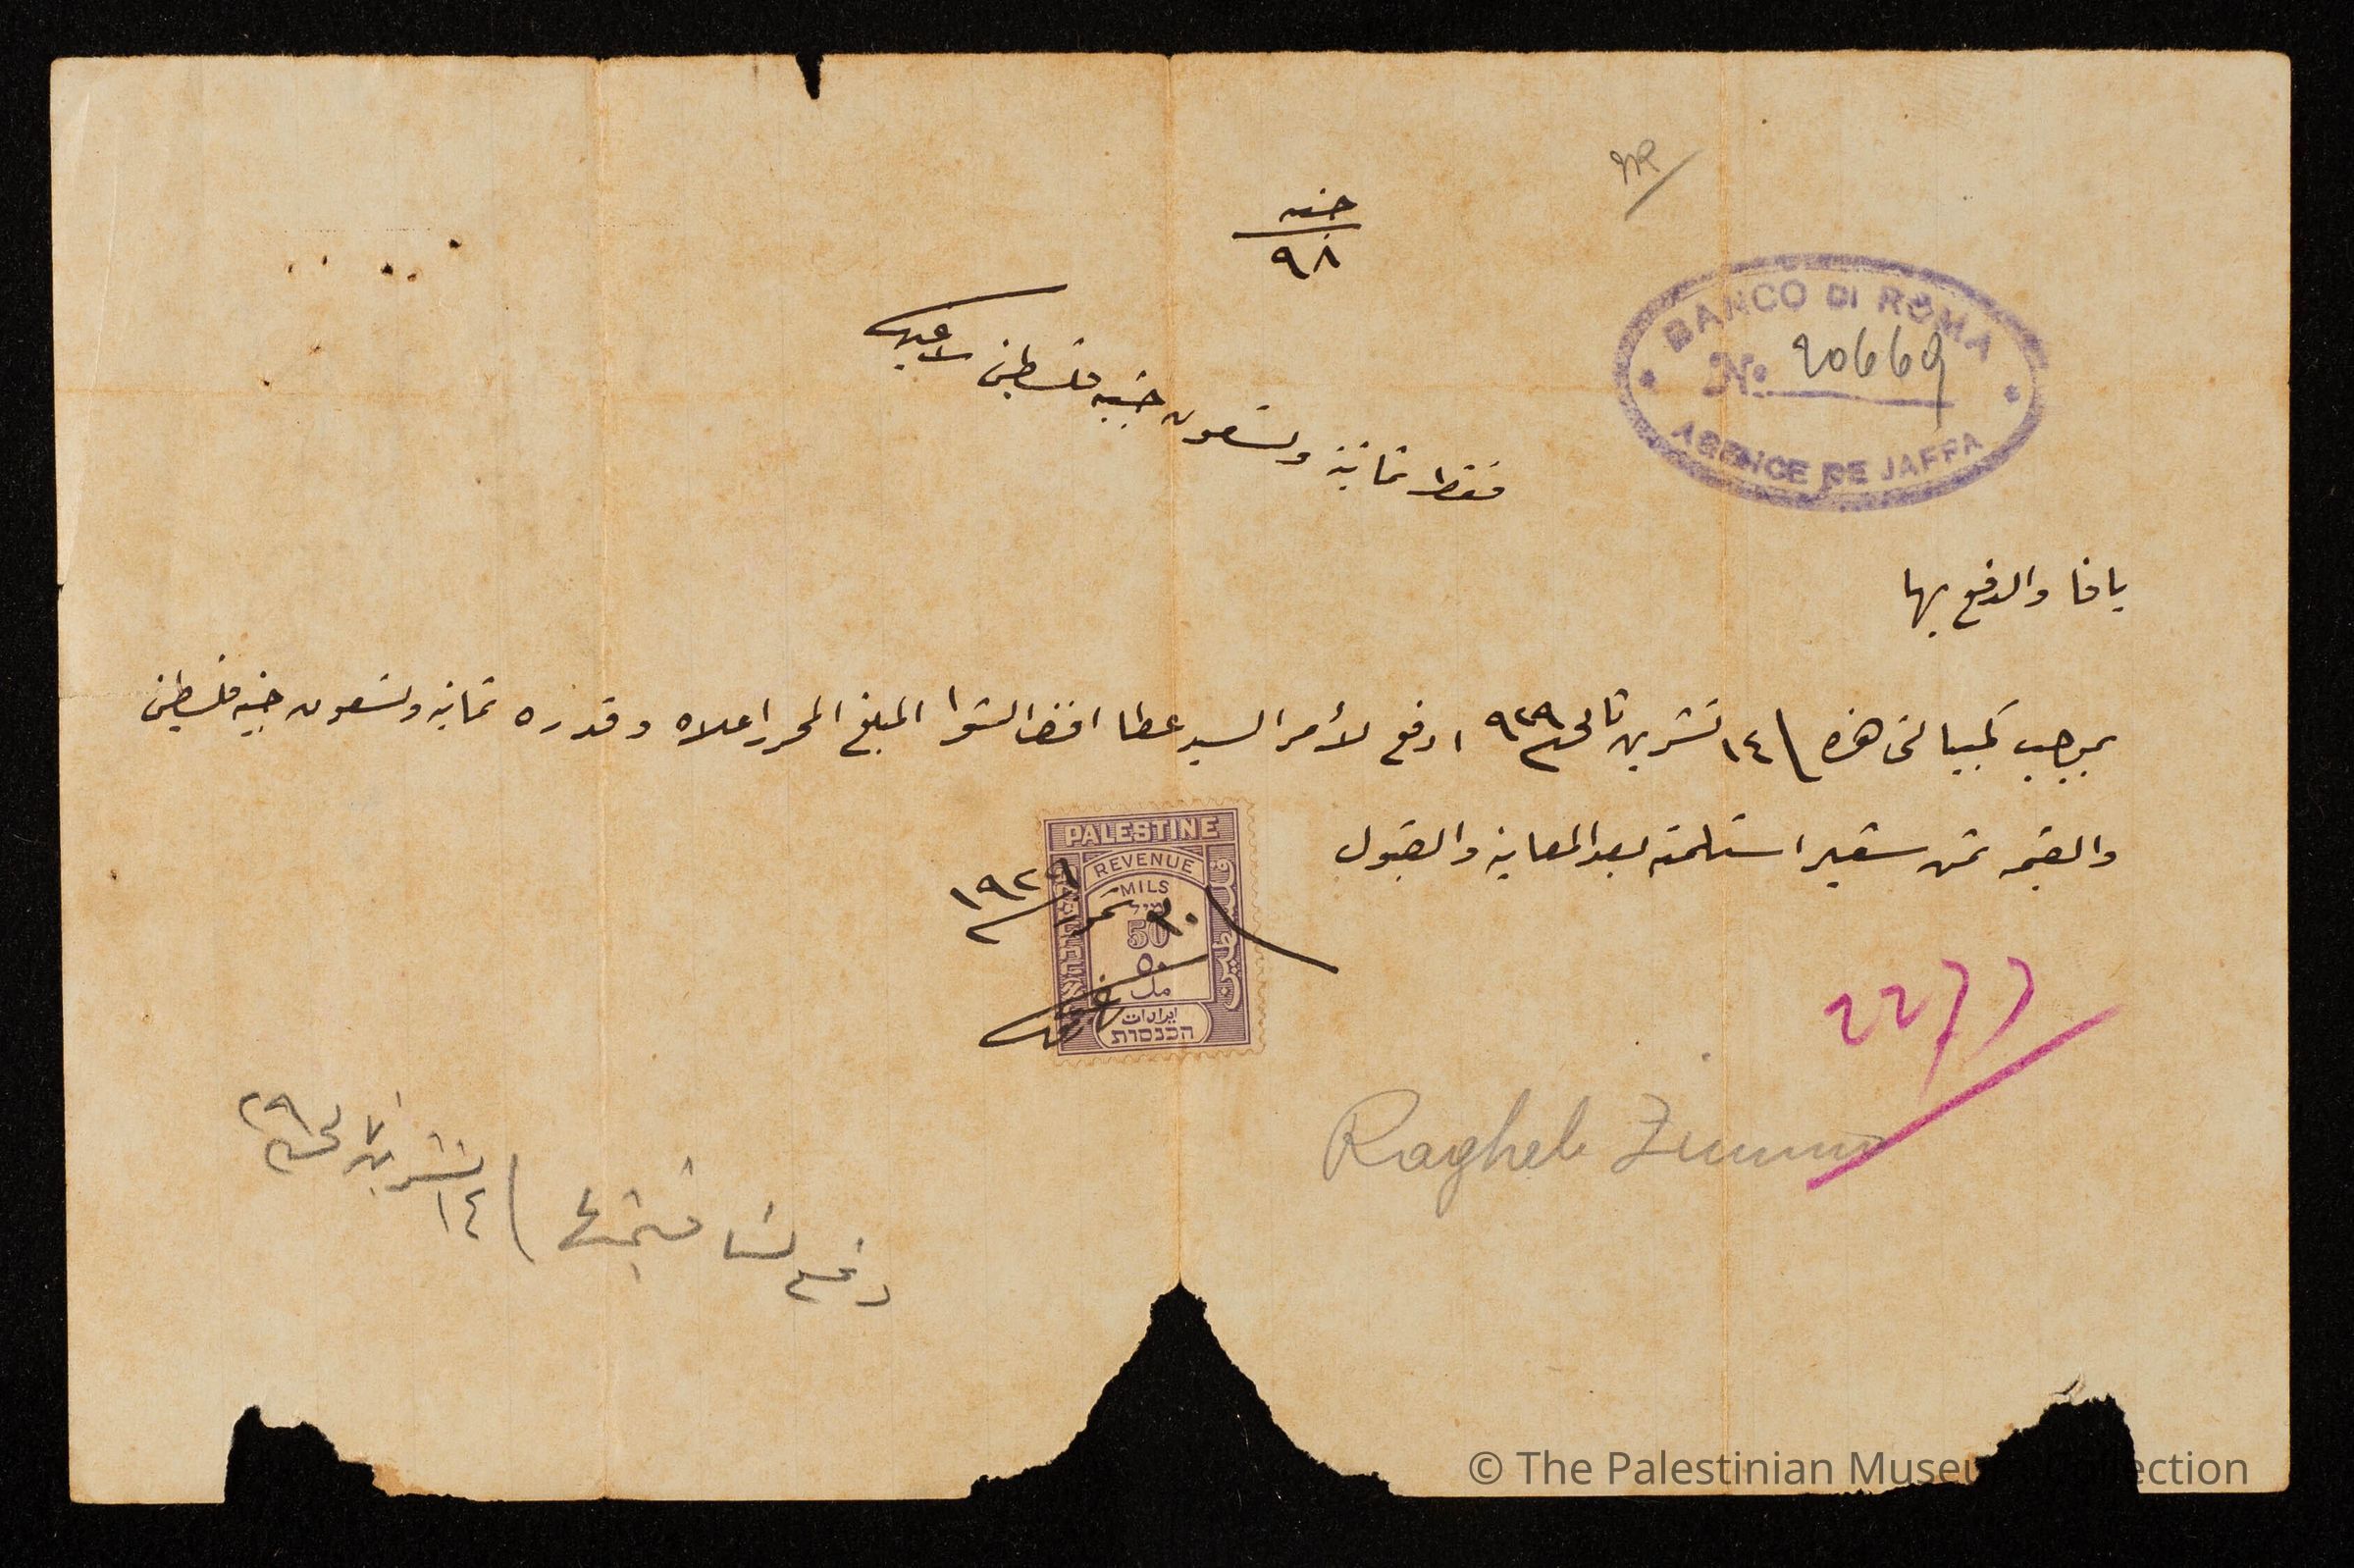 جنيه
٩٨
فقط ثمانية وتسعون جنيه فلسطيني لا غير
BANCO DI ROMA
No. 20669
AGENCE DE JAFFA
يافا والدفع بها
بموجب كمبيالتي هذه \ ١٤ تشرين ثاني سنة ٩٢٩ ادفع لأمر السيد عطا افندي الشوا المبلغ المحرر اعلاه وقدره ثمانية وتسعون جنيه فلسطيني
والقيمة ثمن شعير استلمته بعد المعاينة والقبول
PALESTINE
REVENUE
MILS
מיל
50
٥٠
مل
ايرادات
הכנסות
فلسطين
سنة ١٩٢٩
2277
Ragheb
١٤ تشرين ثاني سنة ٢٩
دفع لنا قيمتها
© The Palestinian Museum Collection